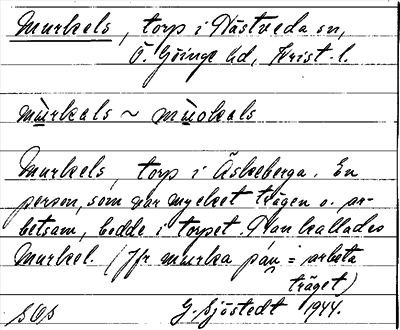 Murkels, torp i Nästveda sn,
Ö. Göinge hd, Krist. l.
mùrkals ~ mùokals
Murkels, torp i Äskeberga. En
person, som var mycket trägen o. ar-
betsam, bodde i torpet. Han kallades
Murkel. (Jfr murka på = arbeta
träget)
SOS G. Sjöstedt 1944.